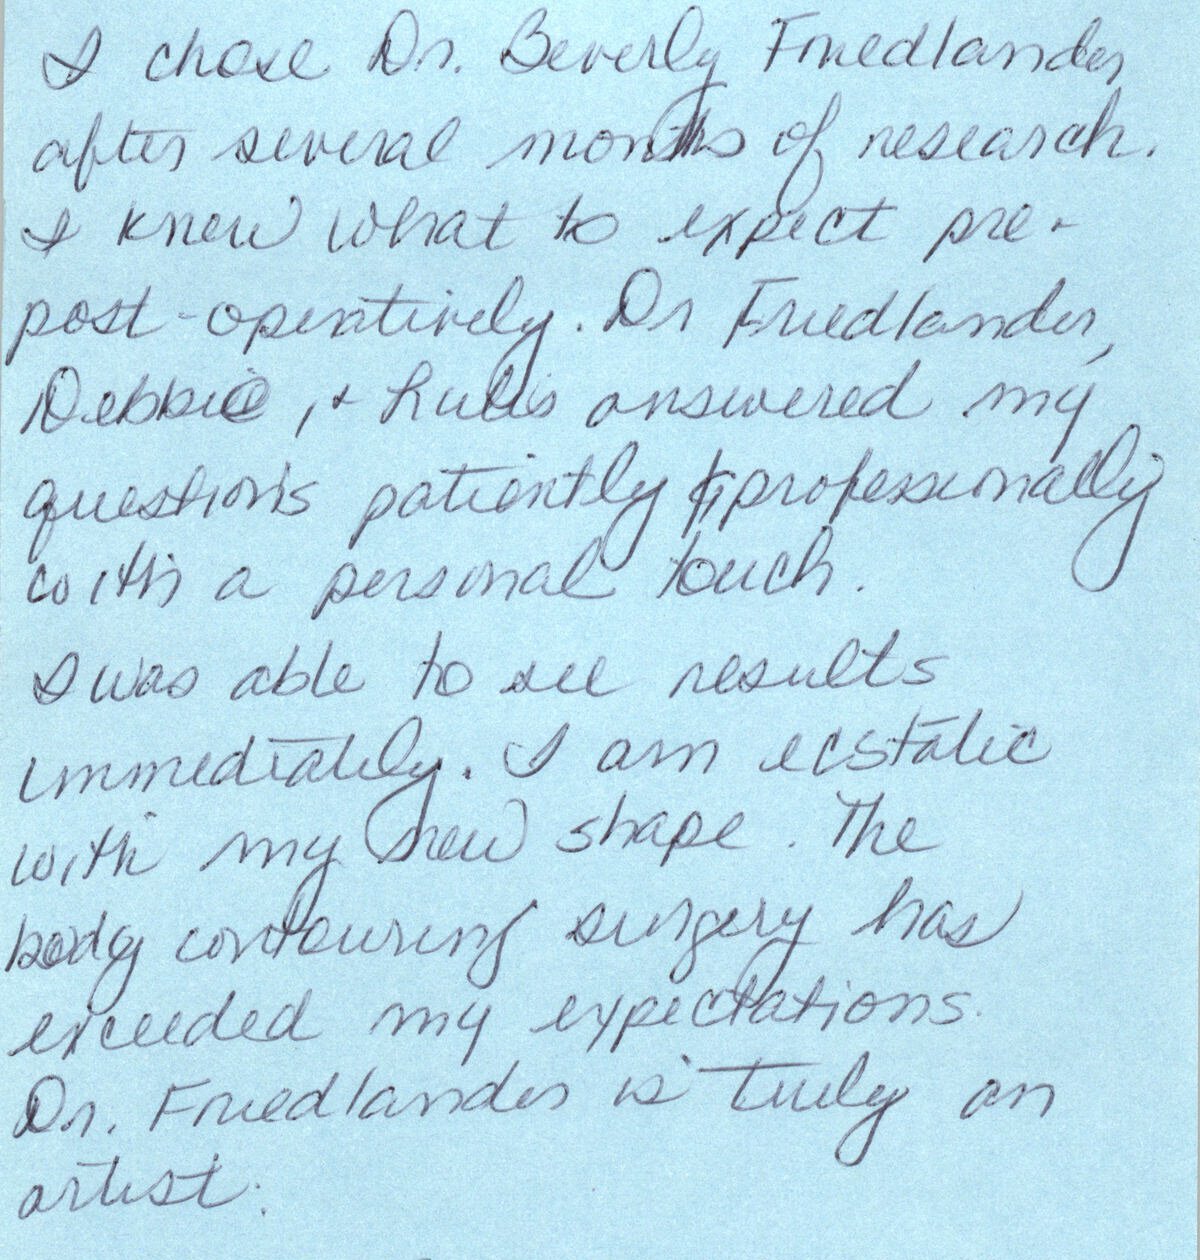 I chose Dr. Beverly Friedlander
after several months of research.
I knew what to expect pre-
post-operatively. Dr Friedlander,
Debbie, + answered my
questions patiently & professionally
with a personal touch.
I was able to see results
immediately. I am ecstatic
with my new shape. The
body contouring surgery has
exceeded my expectations.
Dr. Friedlander is truly an
artist.